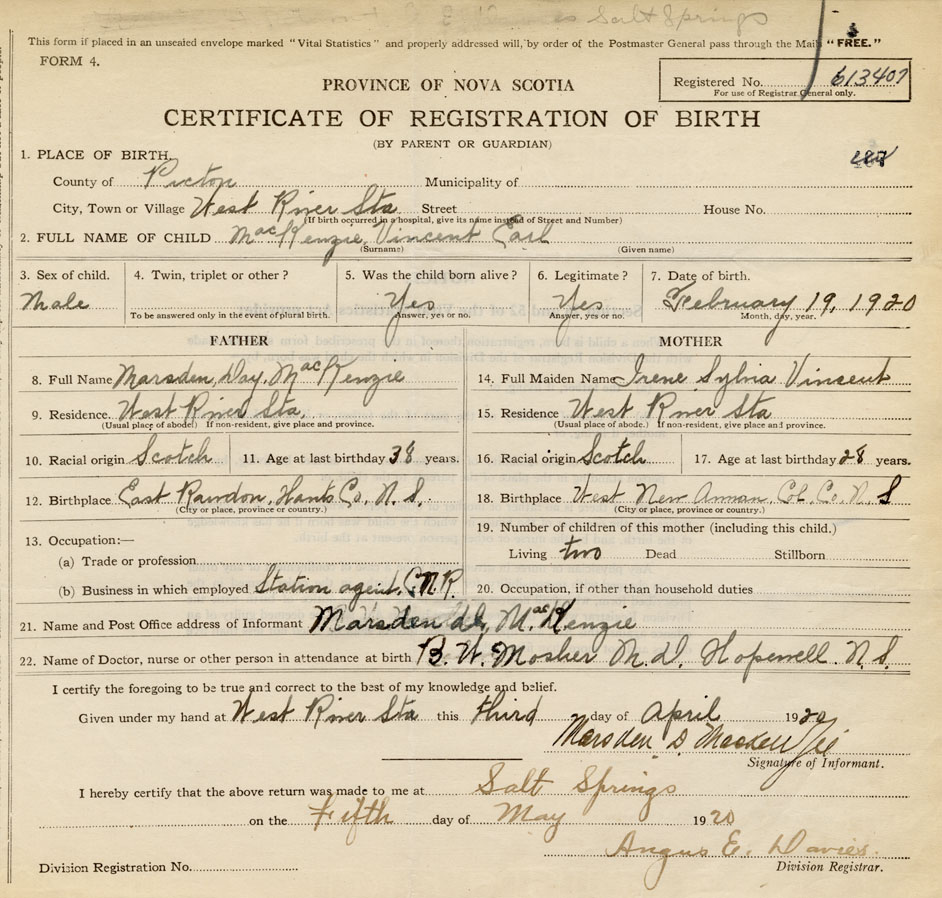 Salt Springs
This form if placed in an unsealed envelope marked "Vital Statistics" and properly addressed will, by order of the Postmaster General pass through the Mails "FREE."
FORM 4.
Registered No. 613407
For use of Registrar General only.
PROVINCE OF NOVA SCOTIA
CERTIFICATE OF REGISTRATION OF BIRTH
(BY PARENT OR GUARDIAN)
1. PLACE OF BIRTH.
County of Pictou Municipality of
City, Town or Village West River Sta Street House No.
(If birth occurred in a hospital, give its name instead of Street and Number)
2. FULL NAME OF CHILD MacKenzie, Vincent Earl
(Surname) (Given name)
3. Sex of child. 4. Twin, triplet or other? 5. Was the child born alive? 6. Legitimate? 7. Date of birth.
Male Yes Yes February 19, 1920
To be answered only in the event of plural birth. Answer, yes or no. Answer, yes or no. Month, day, year.
FATHER
8. Full Name Marsden Day MacKenzie
9. Residence. West River Sta.
(Usual place of abode) If non-resident, give place and province.
10. Racial origin Scotch 11. Age at last birthday 38 years.
12. Birthplace East Rawdon, Hants Co, N. S.
(City or place, province or country.)
13. Occupation:—
(a) Trade or profession
(b) Business in which employed Station agent, C.N.R.
MOTHER
14. Full Maiden Name Irene Sylvia Vincent
15. Residence West River Sta
(Usual place of abode.) If non-resident, give place and province.
16. Racial origin Scotch 17. Age at last birthday 28 years.
18. Birthplace West New Annan, Col. Co. N. S
(City or place, province or country.)
19. Number of children of this mother (including this child.)
Living two Dead Stillborn
20. Occupation, if other than household duties
21. Name and Post Office address of Informant Marsden D. MacKenzie
22. Name of Doctor, nurse or other person in attendance at birth B. W. Mosher M.D. Hopewell N.S.
I certify the foregoing to be true and correct to the best of my knowledge and belief.
Given under my hand at West River Sta this third day of April 1920
Marsden D MacKenzie
Signature of Informant.
I hereby certify that the above return was made to me at Salt Springs
on the Fifth day of May 1920
Angus E. Davies.
Division Registration No. Division Registrar.